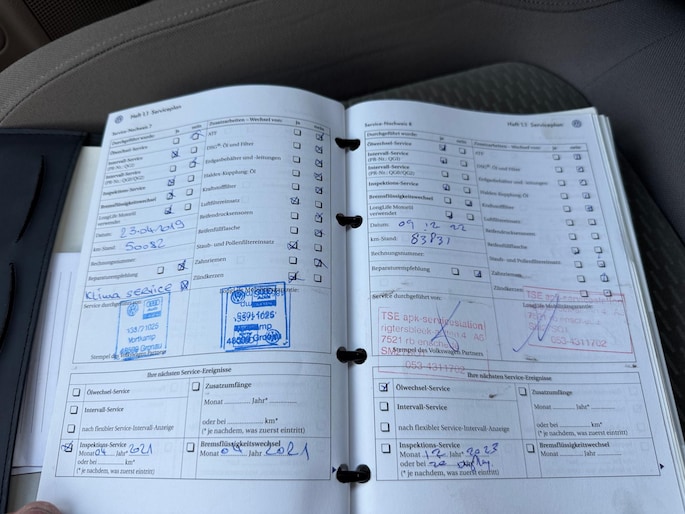 Heft 1.1 Serviceplan
Service-Nachweis 7
Durchgeführt wurde: ja nein
Ölwechsel-Service
Intervall-Service
(PR-Nr.: QG1)
Intervall-Service
Inspektions-Service
Bremsflüssigkeitswechsel
LongLife Motoröl
verwendet
Datum: 23-04-2019
km-Stand: 50082
Rechnungsnummer:
Reparaturempfehlung
Klima service
Service durchgeführt von:
Zusatzarbeiten – Wechsel von: ja nein
ATF
DSG®-Öl und Filter
Erdgasbehälter und -leitungen
Haldex-Kupplung: Öl
Kraftstofffilter
Luftfiltereinsatz
Reifendrucksensoren
Reifenfüllflasche
Staub- und Pollenfiltereinsatz
Zahnriemen
Zündkerzen
158/71025
Vortkamp
48599 Gronau
Ihre nächsten Service-Ereignisse
Ölwechsel-Service
Intervall-Service
nach flexibler Service-Intervall-Anzeige
Inspektions-Service
Monat 04 Jahr 2021
oder bei km*
(* je nachdem, was zuerst eintritt)
Zusatzumfänge
Monat Jahr*
oder bei km*
(* je nachdem, was zuerst eintritt)
Bremsflüssigkeitswechsel
Monat 04 Jahr 2021
Service-Nachweis 8
Heft 1.1 Serviceplan
Durchgeführt wurde: ja nein
Ölwechsel-Service
Intervall-Service
(PR-Nr.: QG1)
Intervall-Service
Inspektions-Service
Bremsflüssigkeitswechsel
LongLife Motoröl
verwendet
Datum: 09 12 22
km-Stand: 83831
Rechnungsnummer:
Reparaturempfehlung
Service durchgeführt von:
Zusatzarbeiten – Wechsel von: ja nein
ATF
DSG®-Öl und Filter
Erdgasbehälter und -leitungen
Haldex-Kupplung: Öl
Kraftstofffilter
Luftfiltereinsatz
Reifendrucksensoren
Reifenfüllflasche
Staub- und Pollenfiltereinsatz
Zahnriemen
Zündkerzen
TSE apk-servicestation
053-4311702
Stempel des Volkswagen Partners
Ihre nächsten Service-Ereignisse
Ölwechsel-Service
Intervall-Service
nach flexibler Service-Intervall-Anzeige
Inspektions-Service
Monat 12 Jahr* 2023
oder bei
(* je nachdem, was zuerst eintritt)
Zusatzumfänge
Monat Jahr*
oder bei km*
(* je nachdem, was zuerst eintritt)
Bremsflüssigkeitswechsel
Monat Jahr